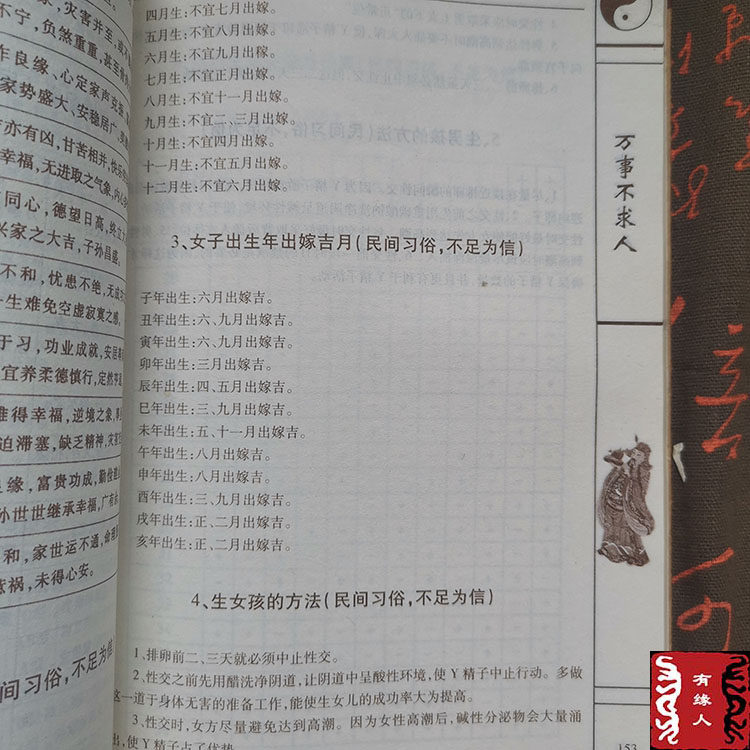 不宁，负煞重重，甚至
作良缘、心定家声克
家势盛大、安稳居
亦有凶，甘苦相并，快
幸福，无进取之气象，内
同心，德望日高，终立
兴家之大吉，子孙昌盛。
不和，忧患不绝，无
一生难免空虚寂寞之感。
于习，功业成就，安居
宜养柔德慎行，定然
难得幸福，逆境之象，
迫滞塞，缺乏精神，灾
良缘，富贵功成，勤俭
孙世世继承幸福，广有
和，家世运不通，
祸，未得心安。
间习俗，不足为信
四月生：不宜七月出嫁。
五月生：不宜八月出嫁。
六月生：不宜九月出稼。
七月生：不宜正月出嫁。
八月生：不宜十一月出嫁。
九月生：不宜二、三月出嫁。
十月生：不宜四月出嫁。
十一月生：不宜五月出嫁。
十二月生：不宜六月出嫁。
3、女子出生年出嫁吉月(民间习俗，不足为信)
子年出生：六月出嫁吉。
丑年出生：六、九月出嫁吉。
寅年出生：六、九月出嫁吉。
卯年出生：三月出嫁吉。
辰年出生：四、五月出嫁吉。
巳年出生：三、九月出嫁吉。
未年出生：五、十一月出嫁吉。
午年出生：八月出嫁吉。
申年出生：八月出嫁吉。
酉年出生：三、九月出嫁吉。
戌年出生：正、二月出嫁吉。
亥年出生：正、二月出嫁吉。
4、生女孩的方法(民间习俗，不足为信)
1、排卵前二、三天就必须中止性交。
2、性交之前先用醋洗净阴道，让阴道中呈酸性环境，使Y精子中止行动。多做
这一道于身体无害的准备工作，能使生女儿的成功率大为提高。
3、性交时，女方尽量避免达到高潮。因为女性高潮后，碱性分泌物会大量涌
出，使Y精子占了优势
万事不求人
153
有缘人